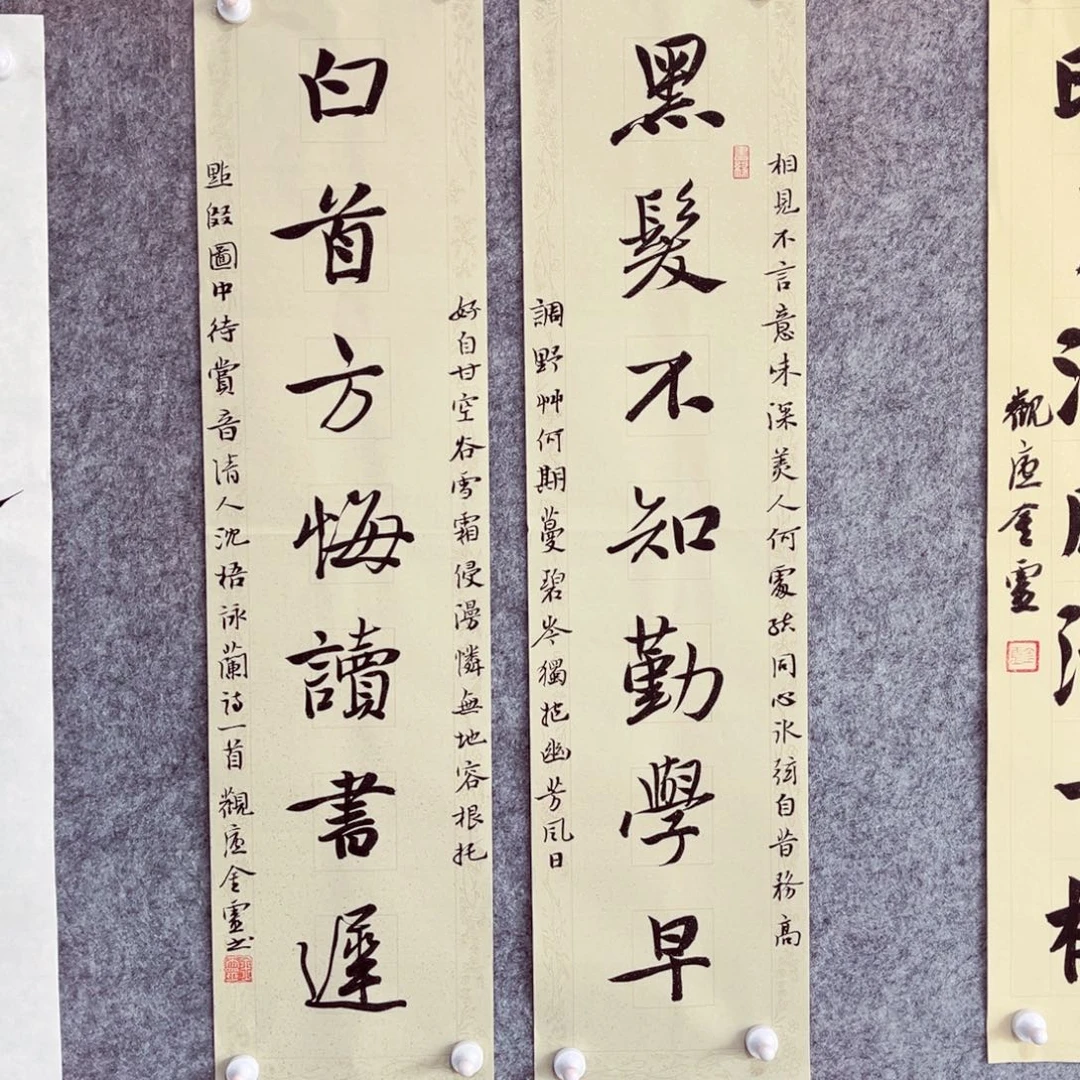 觀
金
相見不言意味深美人何處同心冰弦自昔務高
黑髮不知勤學早
調野艸何期蔓碧岑獨抱幽芳風日
好自甘空谷雪霜侵漫憐無地容根托
白首方悔讀書遲
點綴圖中待賞音清人沈梧詠蘭詩一首觀金書